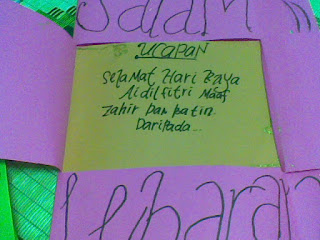 Salam
UCAPAN
Selamat Hari Raya
Aidilfitri Maaf
Zahir Dan batin.
Daripada...
Lebaran